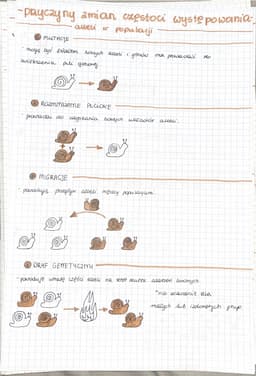 -przyczyny zmian częstości występowania-
alleli w populacji
① MUTACJE
- mogą być źródłem nowych alleli i genów oraz prowadzić do
zwiększenia puli genowej
② ROZMNAŻANIE PŁCIOWE
prowadzi do nowych alleli.
③ MIGRACJE
- powodują przepływ alleli między populacjami
④ DRYF GENETYCZNY
- powoduje utratę części alleli na skutek zdarzeń losowych
*ma znaczenie dla
małych lub izolowanych grup